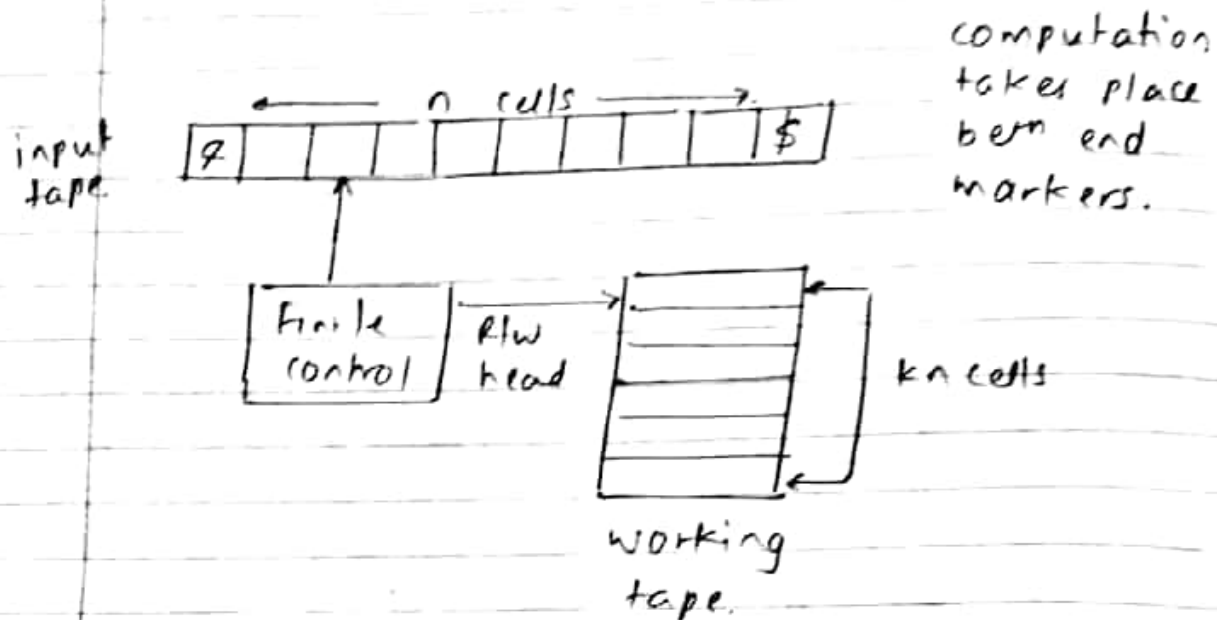 computation
takes place
betn end
markers.
n cells
input
tape
¢
$
Finite
control
R/W
head
kn cells
working
tape.